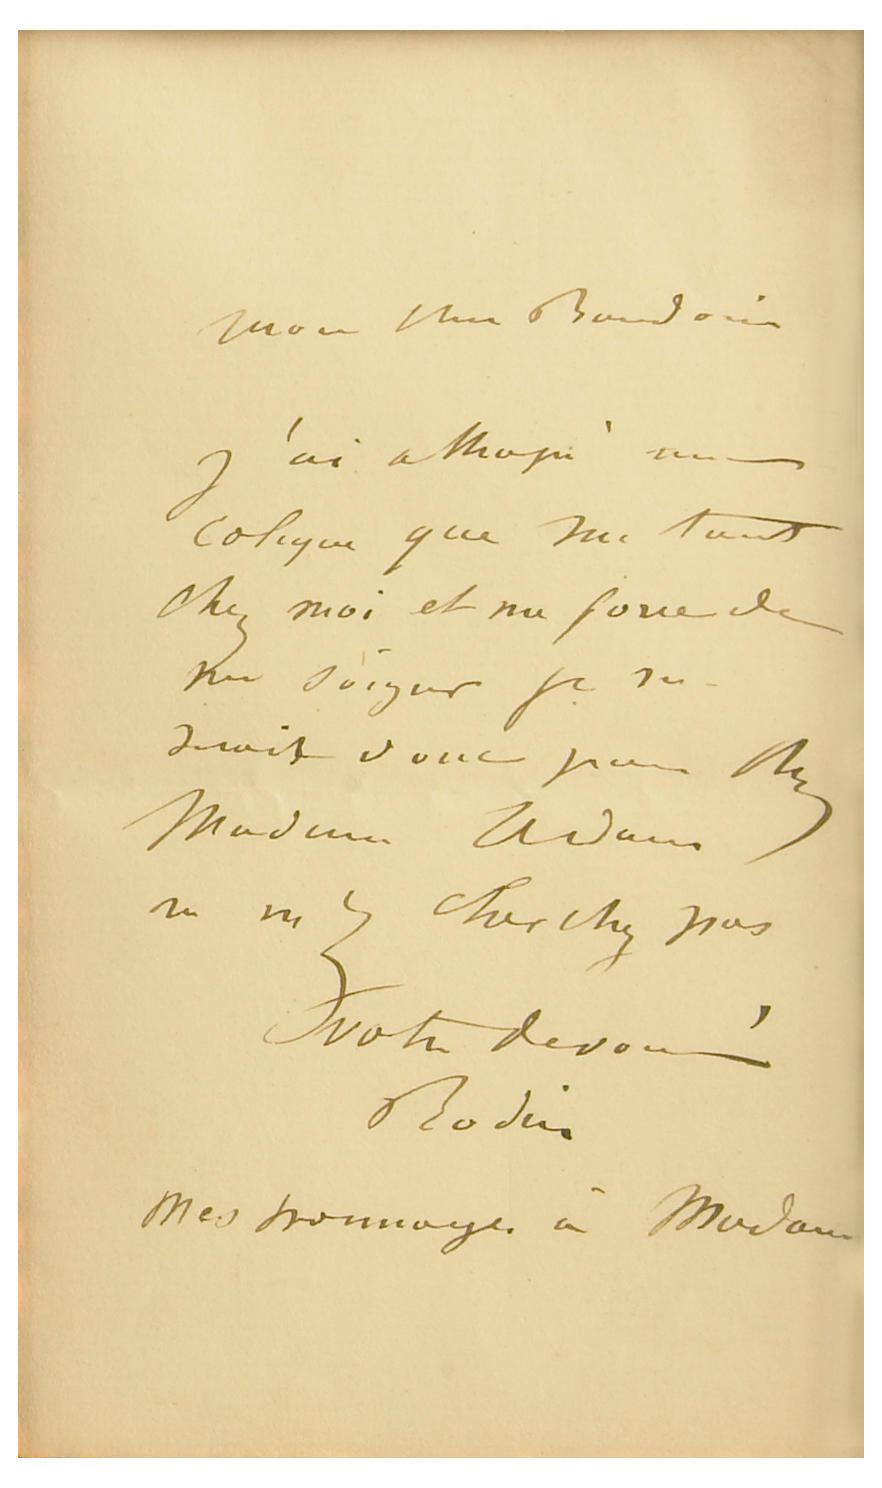 mon cher Baudoin
j'ai attrapé une
colique que me tient
chez moi et me force de
me soigner je ne
serais donc pas chez
Madame Adam
ne m'y cherchez pas
votre devoué
Rodin
Mes hommages à Madame